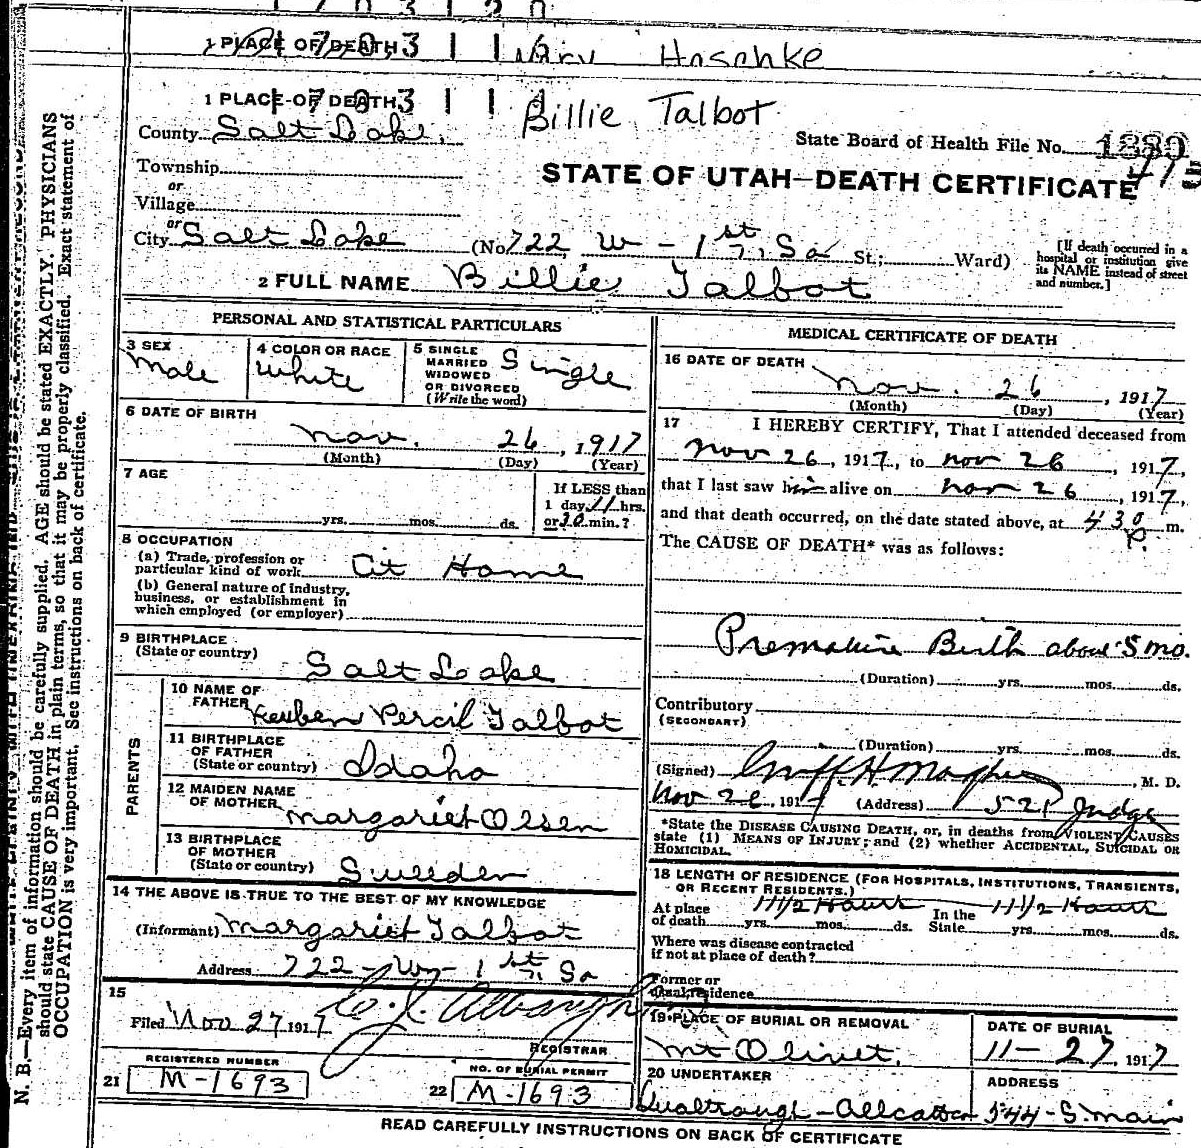 1 PLACE OF DEATH
Hoschke
1 PLACE OF DEATH
Billie Talbot
County Salt Lake.
State Board of Health File No. 1880
Township
or
Village
STATE OF UTAH—DEATH CERTIFICATE
or
City Salt Lake (No. 722 W - 1st So St.; Ward)
[If death occurred in a hospital or institution give its NAME instead of street and number.]
2 FULL NAME Billie Talbot
PERSONAL AND STATISTICAL PARTICULARS
3 SEX
Male
4 COLOR OR RACE
White
5 SINGLE MARRIED WIDOWED OR DIVORCED (Write the word)
Single
6 DATE OF BIRTH
Nov. 26, 1917
(Month) (Day) (Year)
7 AGE
yrs. mos. ds.
If LESS than
1 day, 11 hrs.
or 30 min.?
8 OCCUPATION
(a) Trade, profession or
particular kind of work At Home
(b) General nature of industry,
business, or establishment in
which employed (or employer)
9 BIRTHPLACE
(State or country)
Salt Lake
PARENTS
10 NAME OF
FATHER Reuben Percil Talbot
11 BIRTHPLACE
OF FATHER
(State or country) Idaho
12 MAIDEN NAME
OF MOTHER Margariet Olsen
13 BIRTHPLACE
OF MOTHER
(State or country) Sweeden
14 THE ABOVE IS TRUE TO THE BEST OF MY KNOWLEDGE
(Informant) Margariet Talbot
Address 722 - W - 1st So
15
Filed Nov 27 1917
REGISTRAR
REGISTERED NUMBER
21 M-1693
NO. OF BURIAL PERMIT
22 M-1693
MEDICAL CERTIFICATE OF DEATH
16 DATE OF DEATH
Nov. 26, 1917
(Month) (Day) (Year)
17 I HEREBY CERTIFY, That I attended deceased from
Nov 26, 1917, to Nov 26, 1917,
that I last saw him alive on Nov 26, 1917,
and that death occurred, on the date stated above, at 430 m.
P.
The CAUSE OF DEATH* was as follows:
Premature Birth about 5 mo.
(Duration) yrs. mos. ds.
Contributory
(SECONDARY)
(Duration) yrs. mos. ds.
(Signed) M. D.
Nov 26, 1917 (Address) 521 Judge
*State the DISEASE CAUSING DEATH, or, in deaths from VIOLENT CAUSES
state (1) MEANS OF INJURY; and (2) whether ACCIDENTAL, SUICIDAL OR
HOMICIDAL.
18 LENGTH OF RESIDENCE (FOR HOSPITALS, INSTITUTIONS, TRANSIENTS,
OR RECENT RESIDENTS.)
11 1/2 Hours 11 1/2 Hours
At place
of death yrs. mos. ds.
In the
State yrs. mos. ds.
Where was disease contracted
if not at place of death?
Former or
usual residence
19 PLACE OF BURIAL OR REMOVAL
Mt Olivet.
DATE OF BURIAL
11-27 1917
20 UNDERTAKER
ADDRESS
544-S. Main
READ CAREFULLY INSTRUCTIONS ON BACK OF CERTIFICATE
N. B.—Every item of information should be carefully supplied. AGE should be stated EXACTLY. PHYSICIANS
should state CAUSE OF DEATH in plain terms, so that it may be properly classified. Exact statement of
OCCUPATION is very important. See instructions on back of certificate.